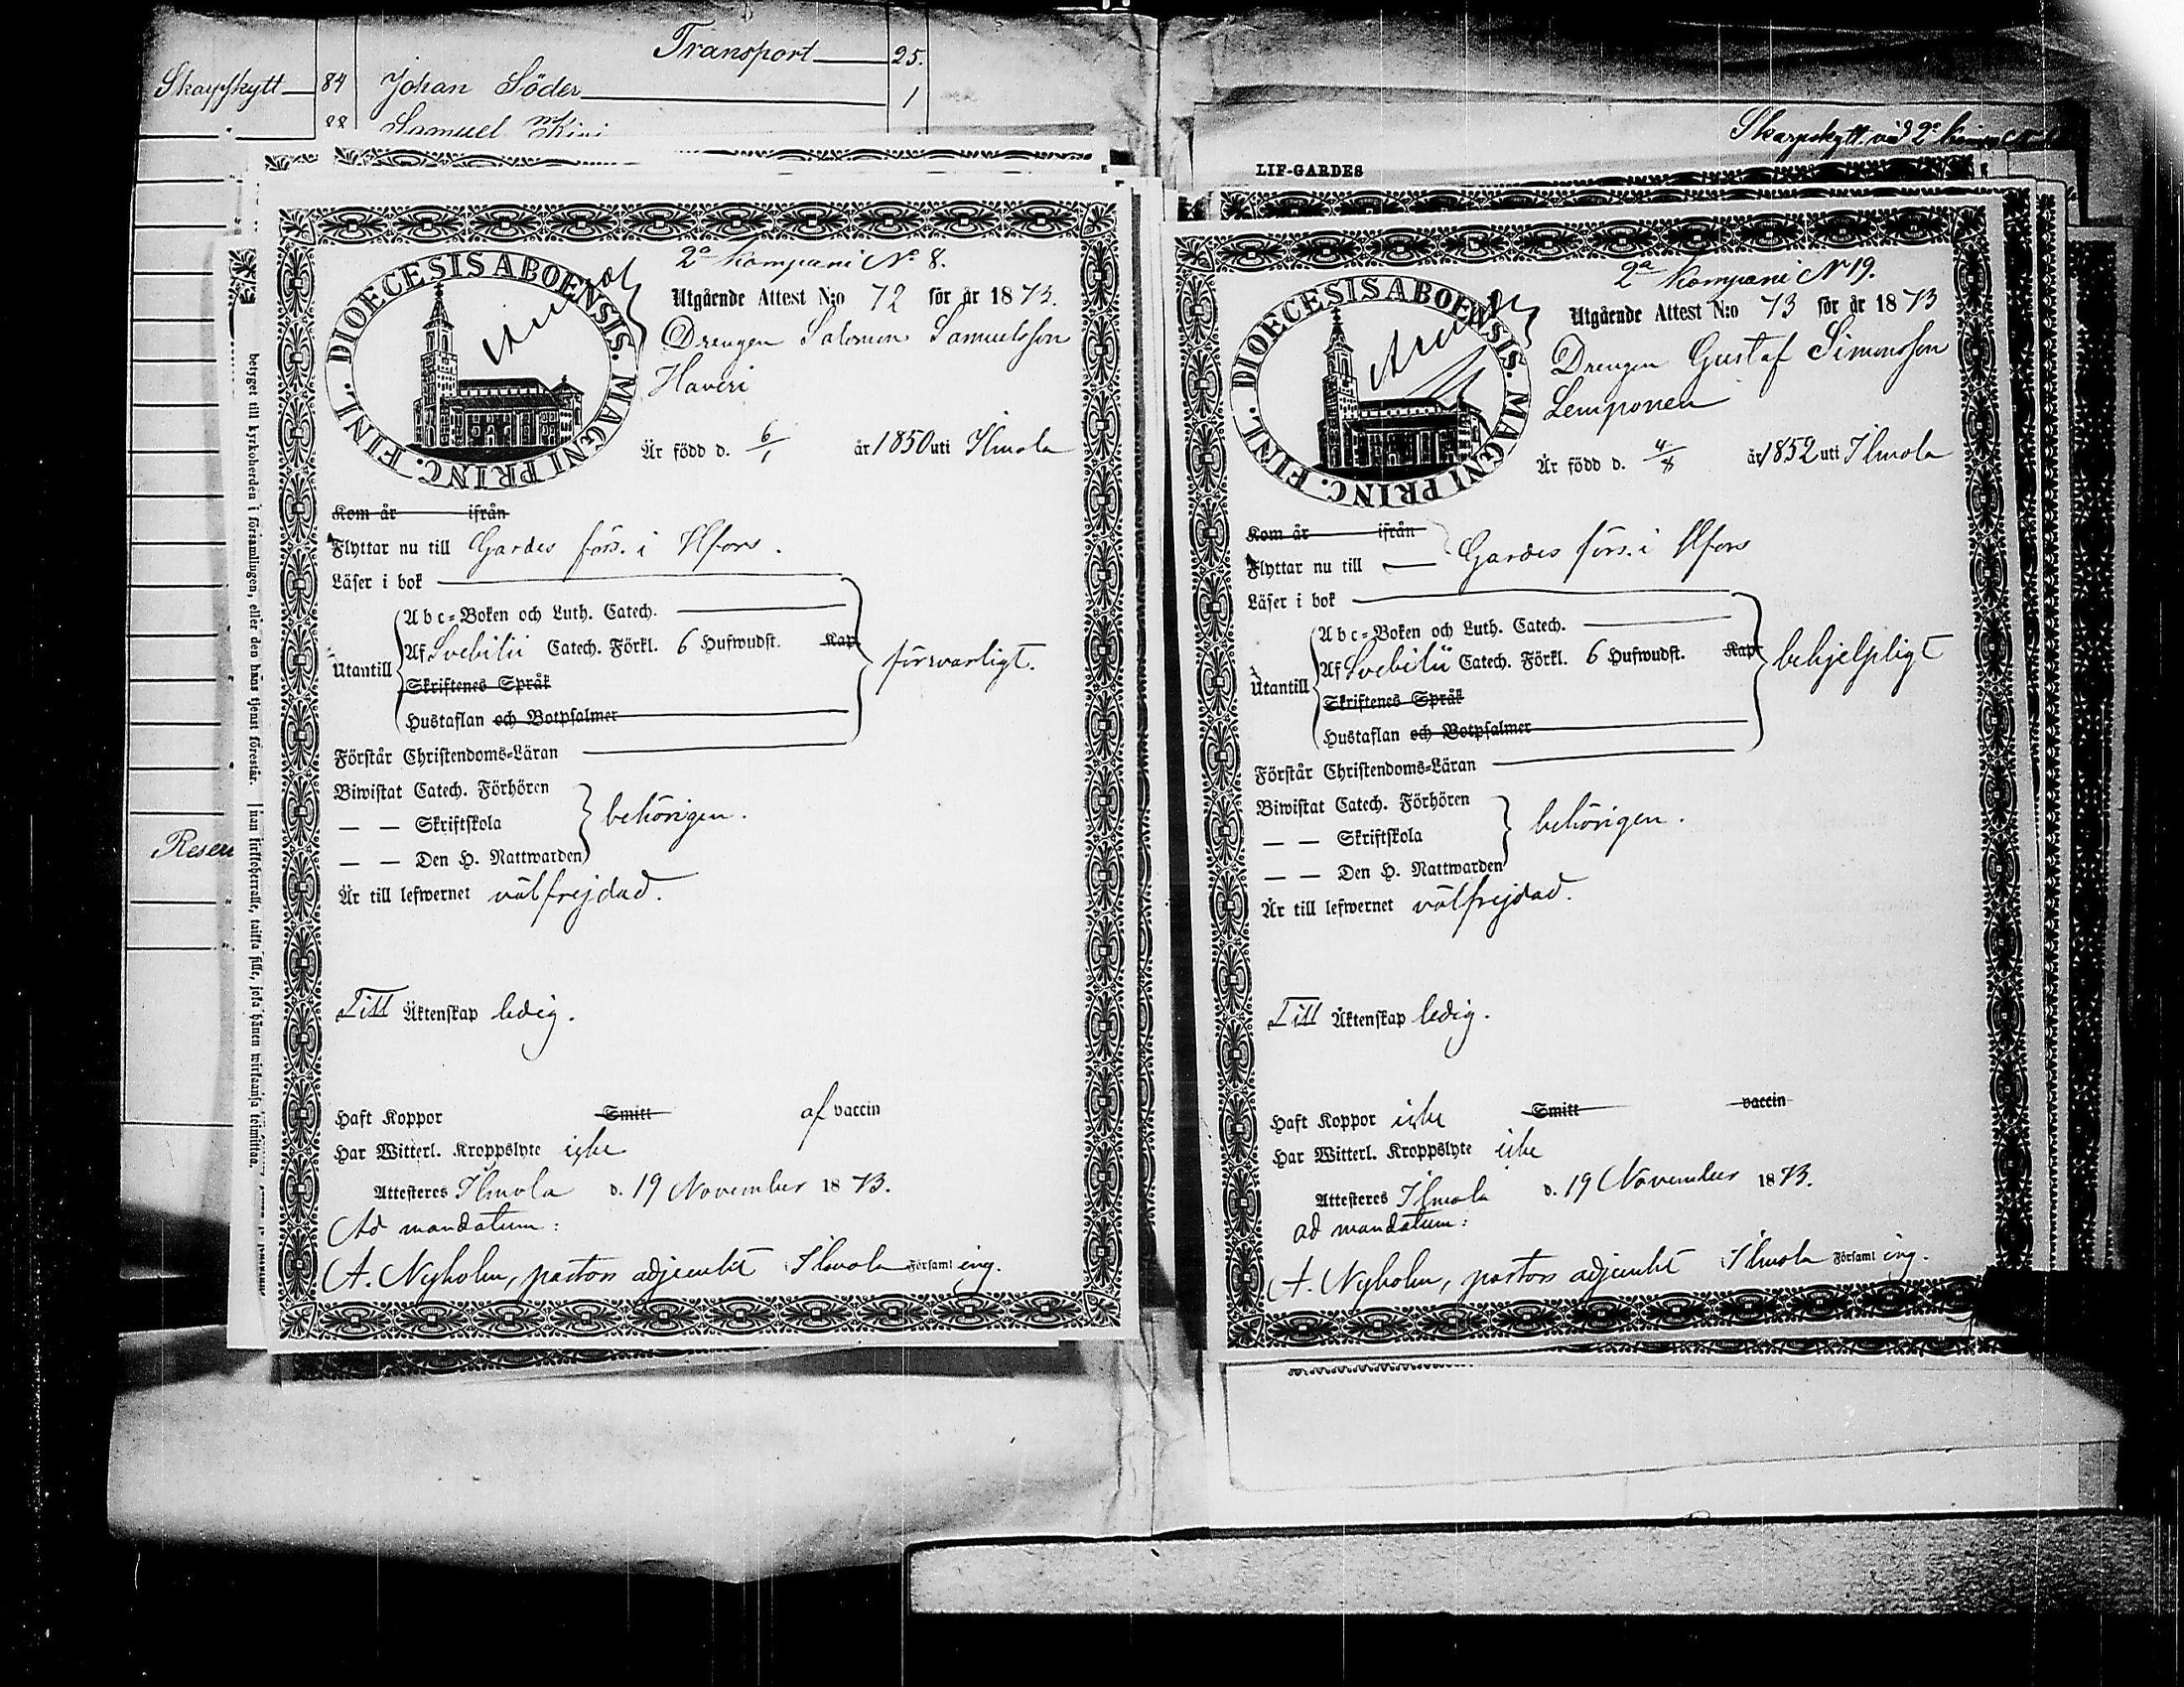 Transport 25.
Skarpskytt 84 Johan Söder 1
88 Samuel Kini
Resen
betyget till kyrkoherden i församlingen, eller den häns tjenst förestår.
2a Kompani No 8.
DIOECESIS ABOENSIS. MAGNI PRINC. FINL.
Utgående Attest N:o 72 för år 1873.
Drengen Salomon Samuelsson
Haveri
Är född d. 6/1 år 1850 uti Ilmola
Kom år ifrån
Flyttar nu till Gardes förs. i Hfors.
Läser i bok
Utantill
Abc-Boken och Luth. Catech.
Af Svebilii Catech. Förkl. 6 Hufwudst. Kap
Skriftenes Språk
Hustaflan och Botpsalmer
försvarligt.
Förstår Christendoms-Läran
Biwistat Catech. Förhören
— — Skriftskola
— — Den H. Nattwarden
behörigen.
Är till lefwernet välfrejdad.
Till Äktenskap ledig.
Haft Koppor Smitt af vaccin
Har Witterl. Kroppslyte icke
Attesteres Ilmola d. 19 November 1873.
Ad mandatum:
A. Nyholm, pastors adjunkt i Ilmola Församl ing.
Skarpskytt vid 2a
LIF-GARDES
2a Kompani N 19.
DIOECESIS ABOENSIS. MAGNI PRINC. FINL.
Utgående Attest N:o 73 för år 1873
Drengen Gustaf Simonsson
Lemponen
Är född d. 4/8 år 1852 uti Ilmola
Kom år ifrån
Flyttar nu till Gardes förs. i Hfors
Läser i bok
Utantill
Abc-Boken och Luth. Catech.
Af Svebilii Catech. Förkl. 6 Hufwudst. Kap
Skriftenes Språk
Hustaflan och Botpsalmer
behjelpligt
Förstår Christendoms-Läran
Biwistat Catech. Förhören
— — Skriftskola
— — Den H. Nattwarden
behörigen.
Är till lefwernet välfrejdad.
Till Äktenskap ledig.
Haft Koppor icke Smitt vaccin
Har Witterl. Kroppslyte icke
Attesteres Ilmola d. 19 November 1873.
ad mandatum:
A. Nyholm, pastors adjunkt i Ilmola Församl ing.